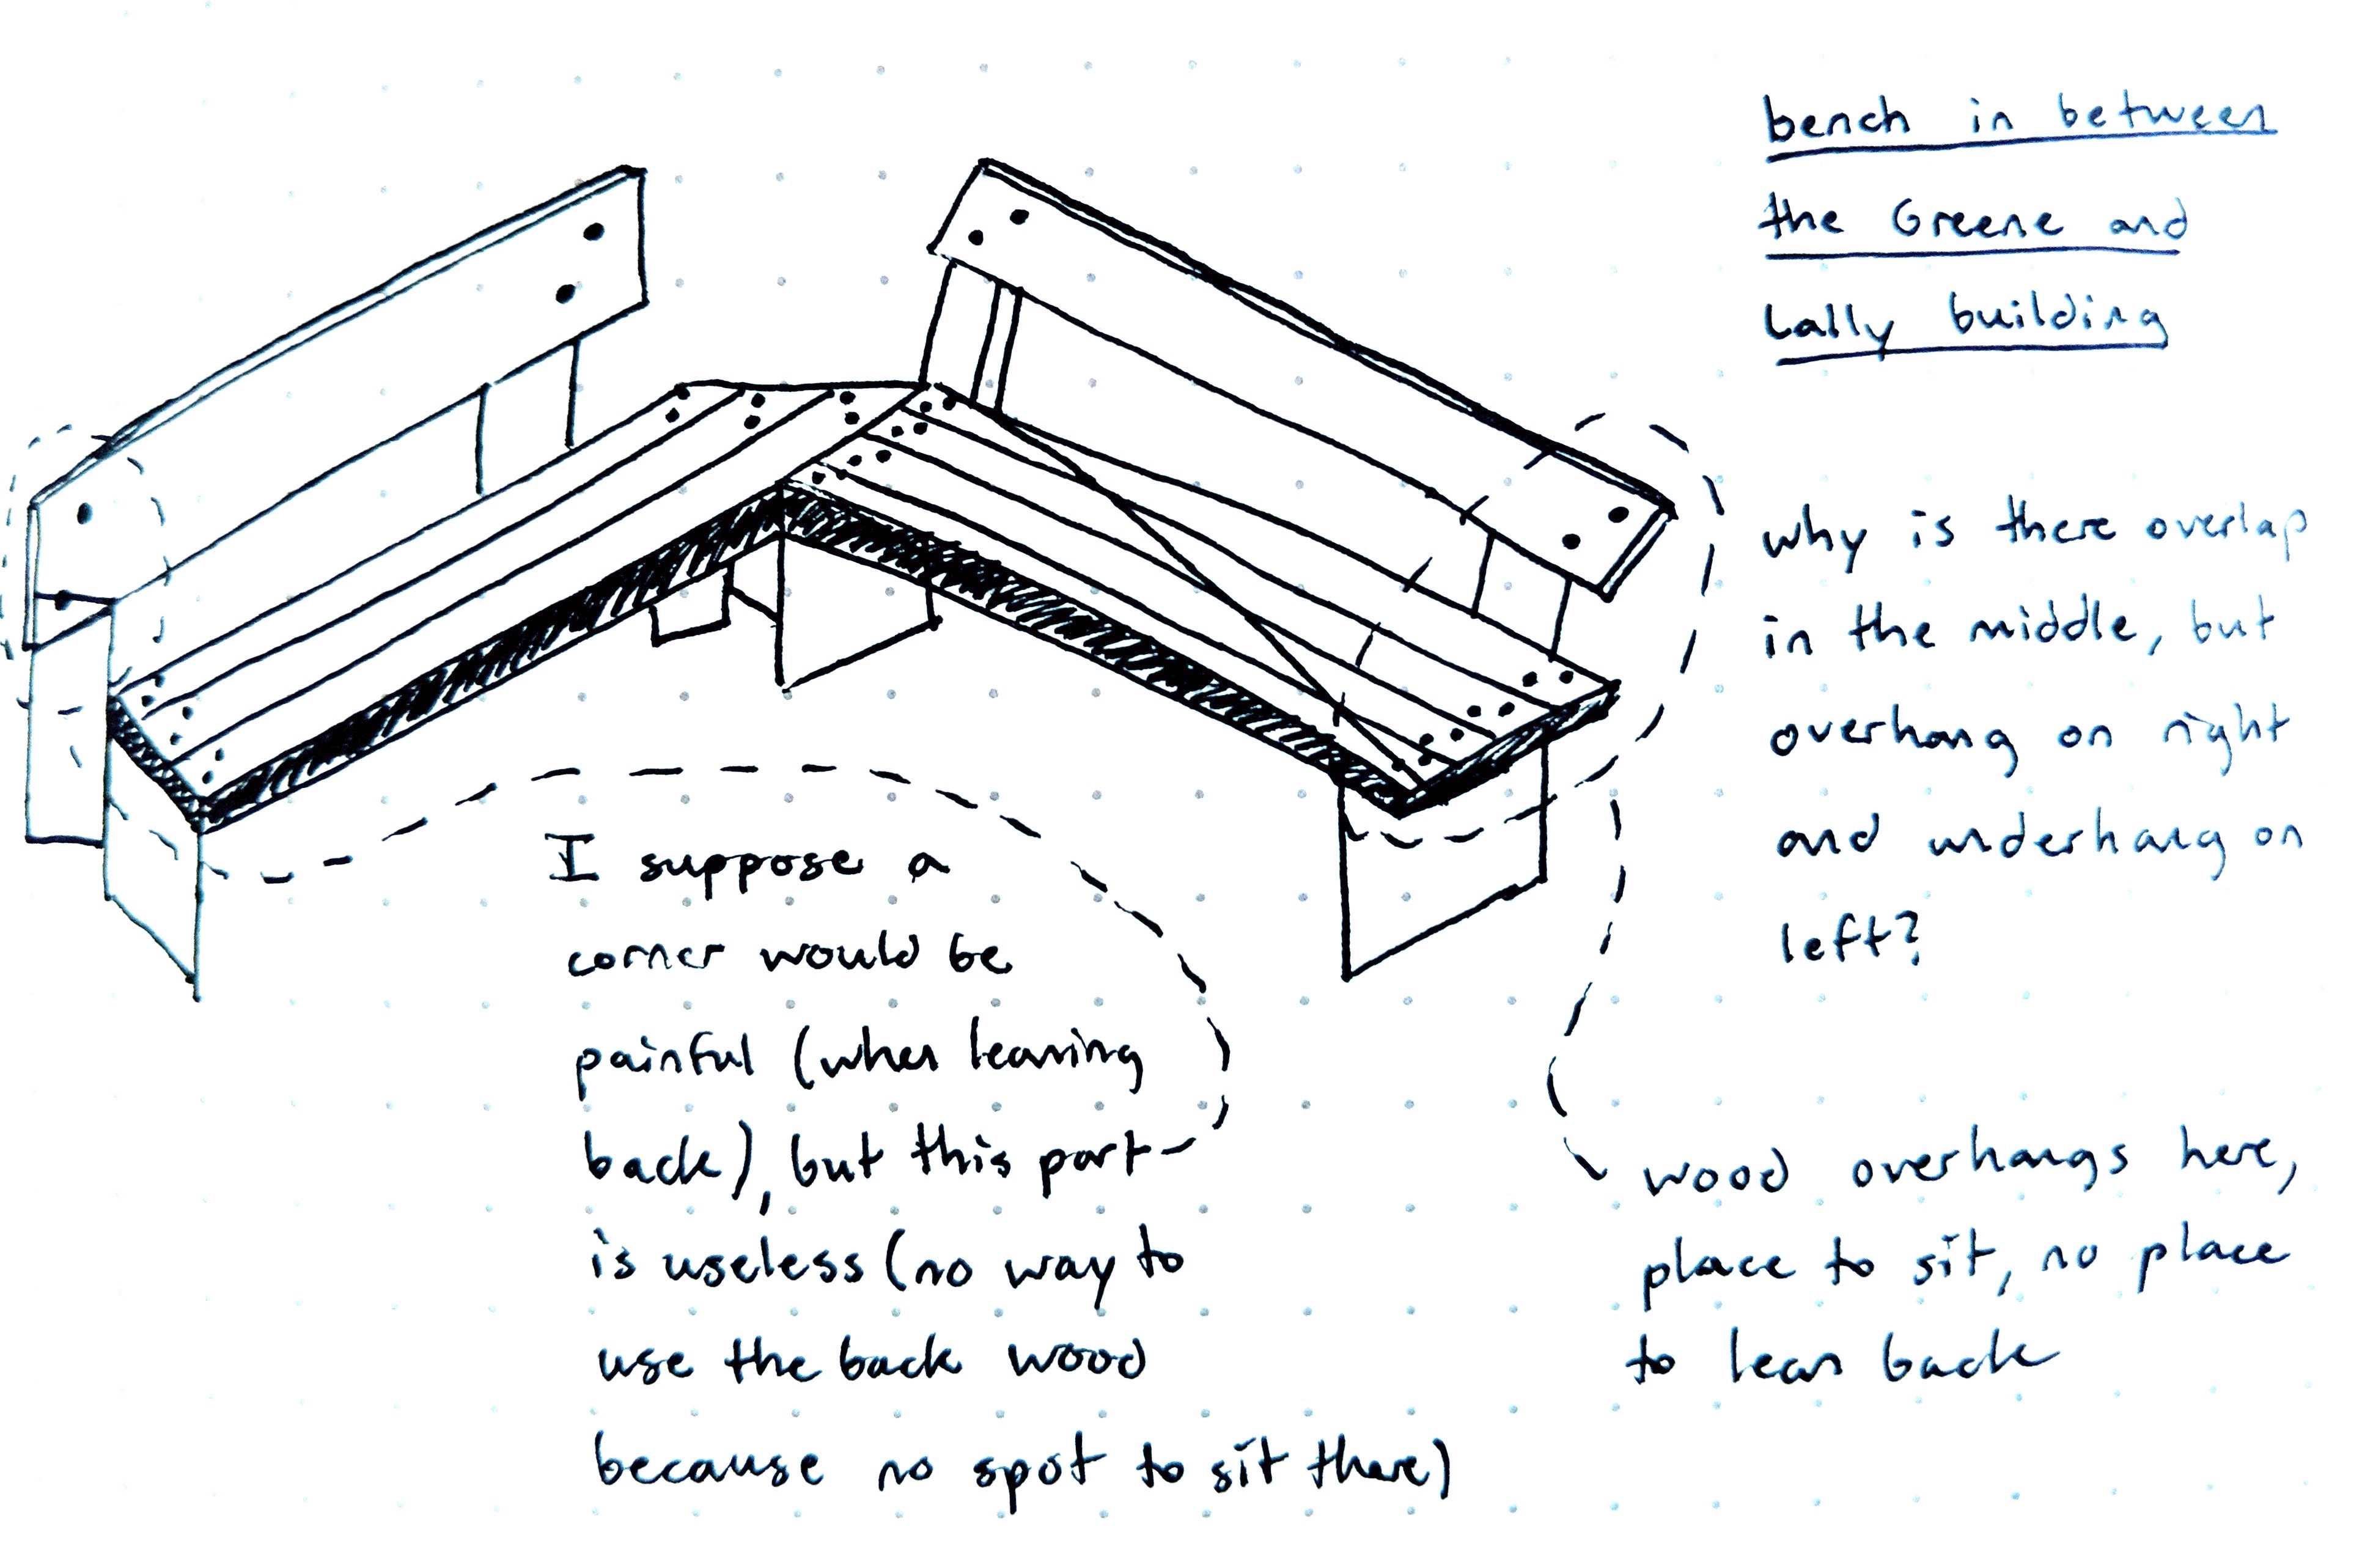 bench in between
the Greene and
Lally building
why is there overlap
in the middle, but
overhang on right
and underhang on
left?
I suppose a
corner would be
painful (when leaning
back), but this part
is useless (no way to
use the back wood
because no spot to sit there)
wood overhangs here,
place to sit, no place
to lean back